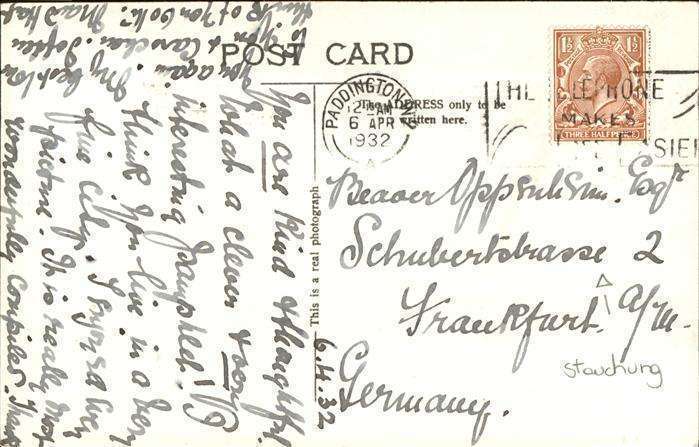 POST CARD
The ADDRESS only to be
written here.
PADDINGTON
12 AM
6 APR
1932
THE TELEPHONE
MAKES
LIFE EASIER
1½ 1½
THREE HALFPENCE
This is a real photograph
6.4.32
You are kind & thoughtful.
What a clever &
interesting pamphlet! I
think you live in a very
fine city. I enjoyed every
picture. It is really most
wonderfully compiled.
you again. My best love
to you & Carochan. I often
think of you both.
Beaver Oppenheim. Esqr
Schubertstrasse 2
Frankfurt. a/m.
Germany.
Stauchung